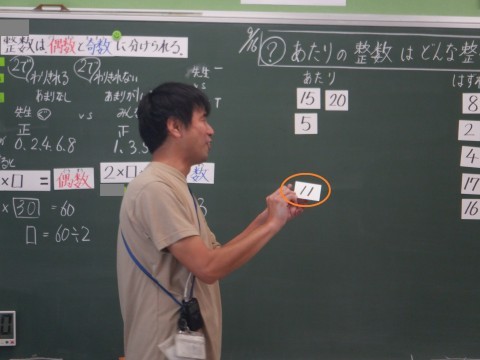 整数は偶数と奇数に分けられる。
2でわりきれる 2でわりきれない
あまりなし あまりが
先生 vs みん
正 正
0.2.4.6.8 1.3.5
×□=偶数 2×□ 数
×30=60
□=60÷2
先生
vs
T
? あたりの整数はどんな整
あたり はずれ
15 20 8
5 2
4
11 17
16